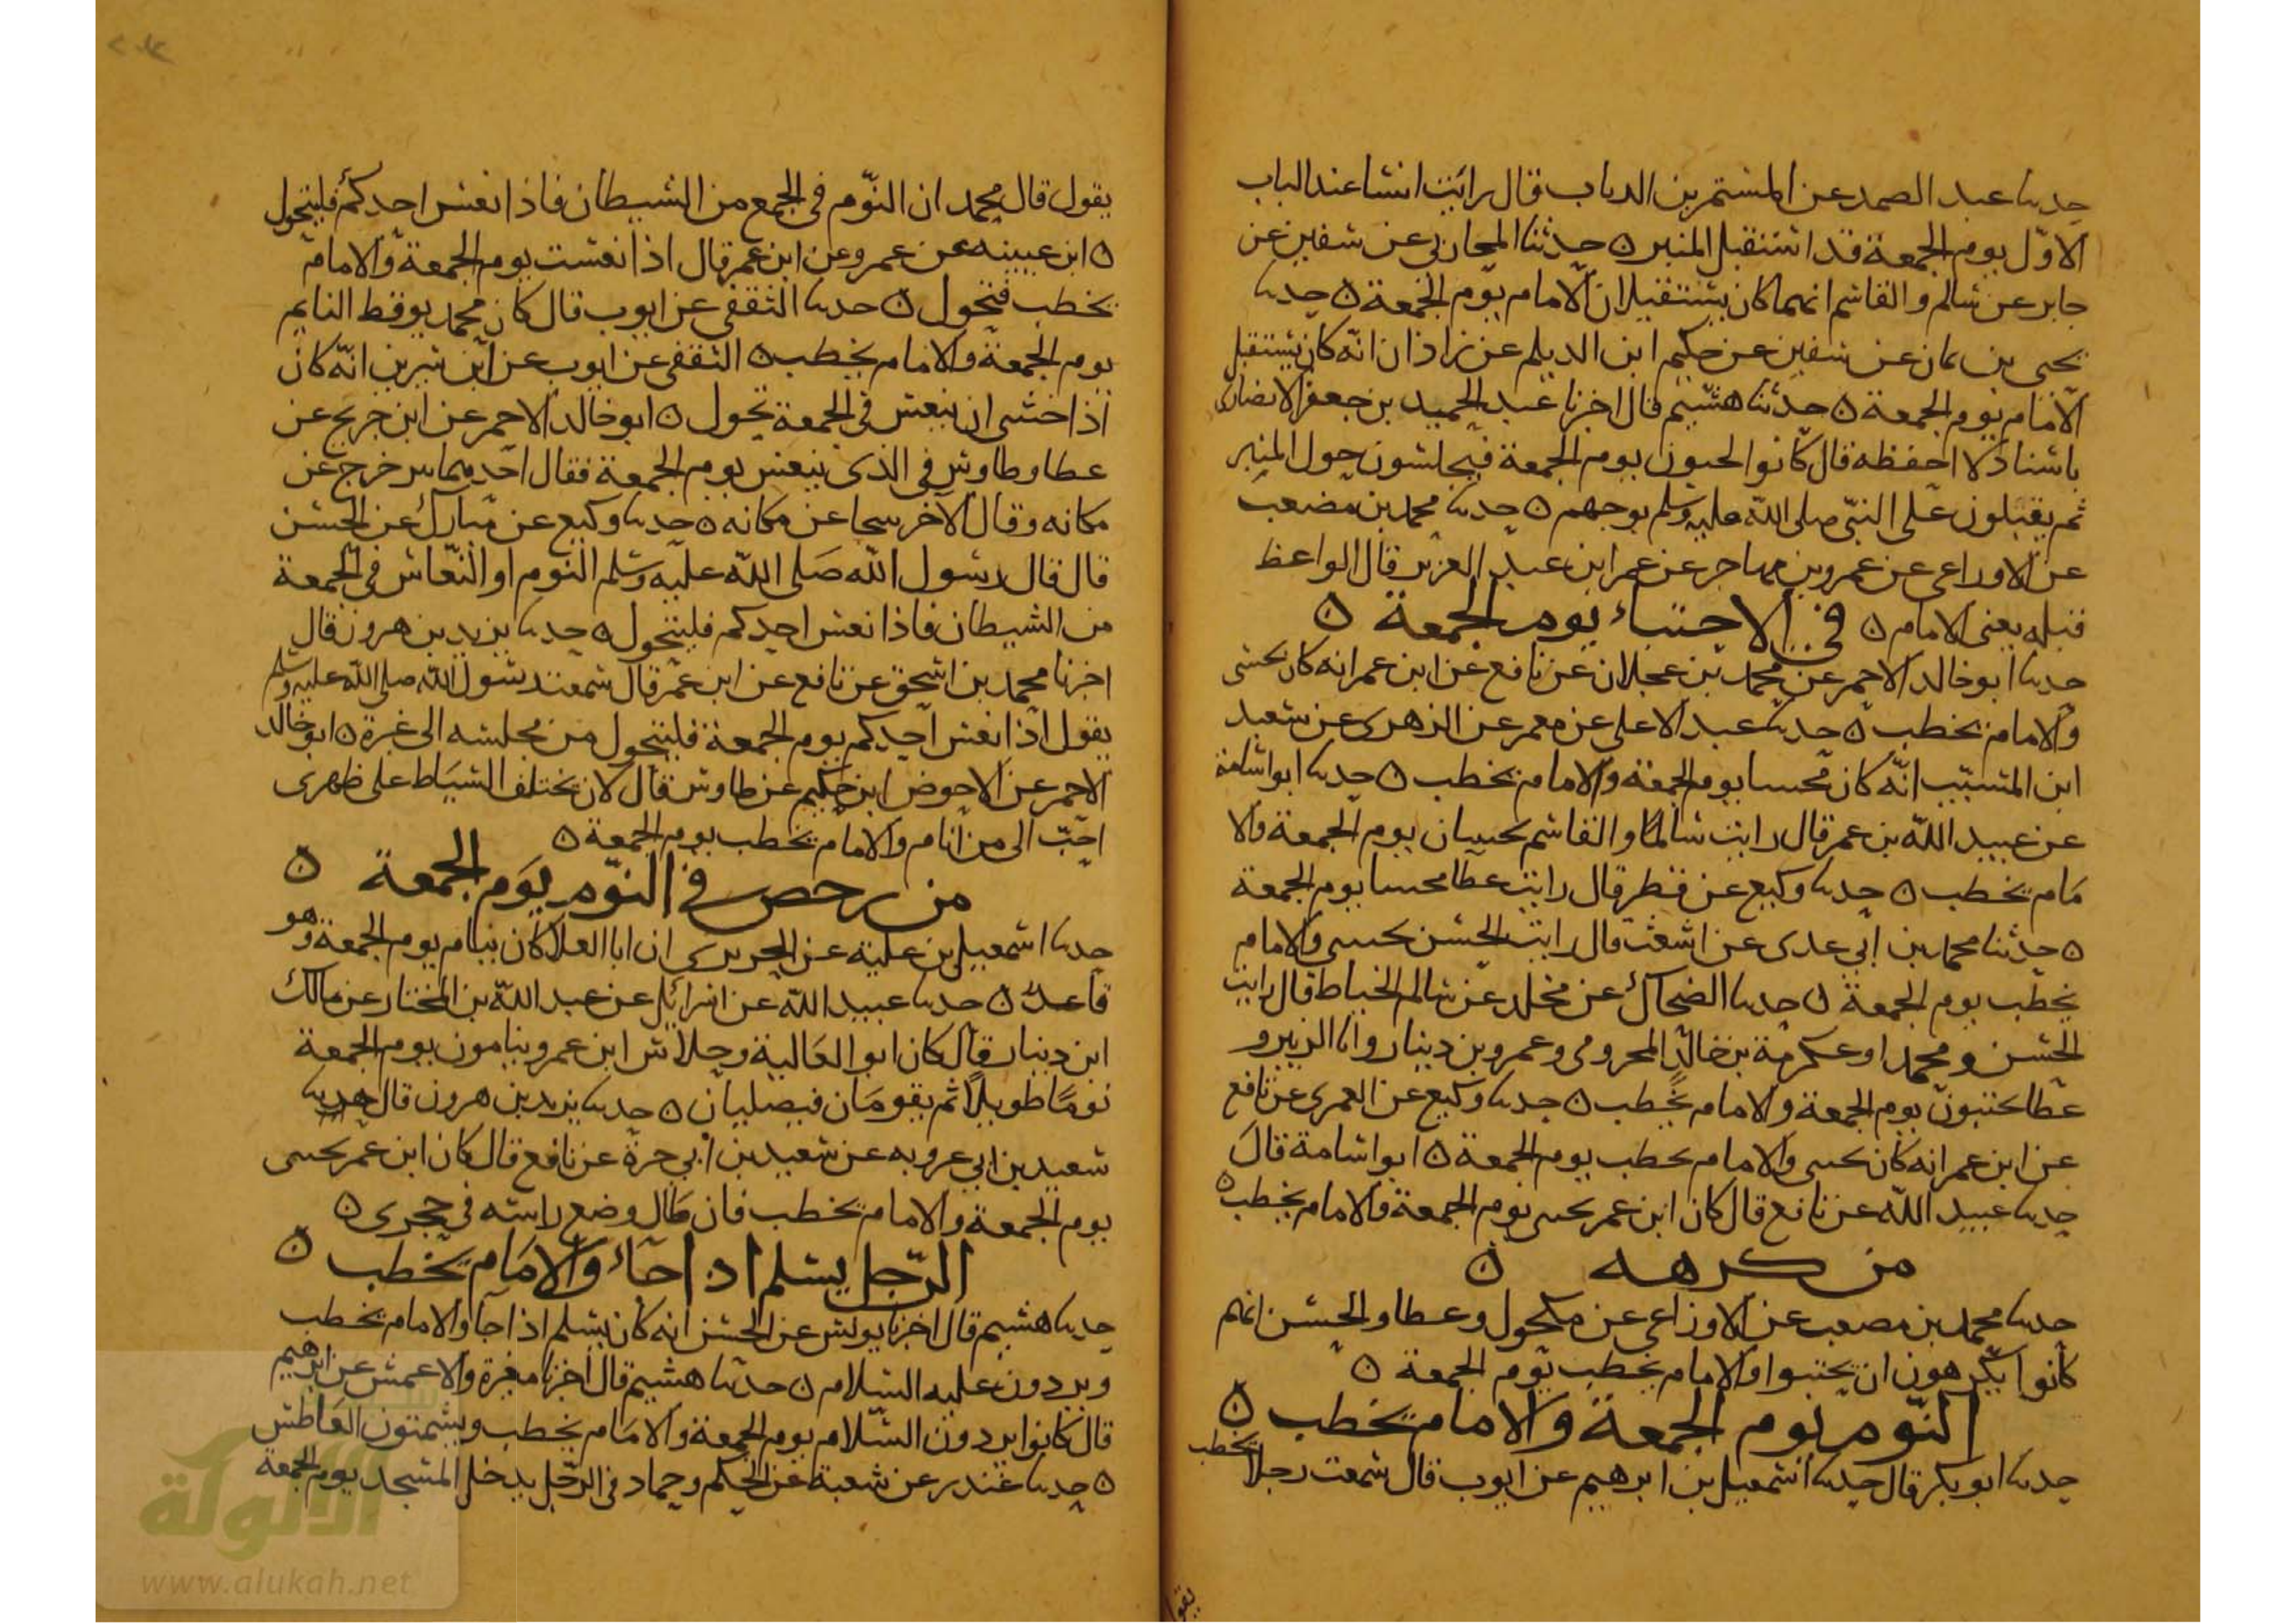 حدثنا عبد الصمد عن المستمر بن الريان قال رايت انسا عند الباب
الاول يوم الجمعة قد استقبل المنبر ٥ حدثنا المحاربي عن سفين عن
جابر عن سالم والقاسم انهما كان يستقبلان الامام يوم الجمعة ٥ حدثنا
يحيى بن يمان عن سفين عن حكيم ابن الديلم عن زاذان انه كان يستقبل
الامام يوم الجمعة ٥ حدثنا هشيم قال اخبرنا عبد الحميد بن جعفر الانصاري
باسناد لا احفظه قال كانوا يجيون يوم الجمعة فيجلسون حول المنبر
ثم يقبلون على النبي صلى الله عليه وسلم بوجههم ٥ حدثنا محمد بن مصعب
عن الاوزاعي عن عمرو بن مهاجر عن عمر ابن عبد العزيز قال الواعظ
قبله يعني الامام ٥ في الاحتباء يوم الجمعة ٥
حدثنا ابو خالد الاحمر عن محمد بن عجلان عن نافع عن ابن عمر انه كان يحتبي
والامام يخطب ٥ حدثنا عبد الاعلى عن معمر عن الزهري عن سعيد
ابن المسيب انه كان محتبيا يوم الجمعة والامام يخطب ٥ حدثنا ابو اسامة
عن عبيد الله بن عمر قال رايت سالما والقاسم يحتبيان يوم الجمعة والا
مام يخطب ٥ حدثنا وكيع عن فطر قال رايت عطا محتبيا يوم الجمعة
٥ حدثنا محمد بن ابي عدي عن اشعث قال رايت الحسن يحتبي والامام
يخطب يوم الجمعة ٥ حدثنا الضحاك عن مخلد عن سالم الخياط قال رايت
الحسن ومحمد او عكرمة بن خالد المخزومي وعمرو بن دينار وابا الزبير و
عطا يحتبون يوم الجمعة والامام يخطب ٥ حدثنا وكيع عن العمري عن نافع
عن ابن عمر انه كان يحتبي والامام يخطب يوم الجمعة ٥ ابو اسامة قال
حدثنا عبيد الله عن نافع قال كان ابن عمر يحتبي يوم الجمعة والامام يخطب ٥
من كرهه ٥
حدثنا محمد بن مصعب عن الاوزاعي عن مكحول وعطا والحسن انهم
كانوا يكرهون ان يحتبوا والامام يخطب يوم الجمعة ٥
النوم يوم الجمعة والامام يخطب ٥
حدثنا ابو بكر قال حدثنا اسمعيل بن ابرهيم عن ايوب قال سمعت رجلا يخطب
يقول
يقول قال محمد ان النوم في الجمع من الشيطان فاذا نعس احدكم فليتحول
٥ ابن عيينه عن عمرو عن ابن عمر قال اذا نعست يوم الجمعة والامام
يخطب فتحول ٥ حدثنا الثقفي عن ايوب قال كان محمد يوقظ النايم
يوم الجمعة والامام يخطب ٥ الثقفي عن ايوب عن ابن سيرين انه كان
اذا خشى ان ينعس في الجمعة تحول ٥ ابو خالد الاحمر عن ابن جريج عن
عطا وطاوس في الذى ينعس يوم الجمعة فقال احدهما خرج عن
مكانه وقال الاخر عن مكانه ٥ حدثنا وكيع عن مبارك عن الحسن
قال قال رسول الله صلى الله عليه وسلم النوم او النعاس في الجمعة
من الشيطان فاذا نعس احدكم فليتحول ٥ حدثنا يزيد بن هرون قال
اخبرنا محمد بن اسحق عن نافع عن ابن عمر قال سمعت رسول الله صلى الله عليه وسلم
يقول اذا نعس احدكم يوم الجمعة فليتحول من مجلسه الى غيره ٥ ابو خالد
الاحمر عن الاحوص ابن حكيم عن طاوس قال لان يختلف السياط على ظهرى
احب الى من انام والامام يخطب يوم الجمعة ٥
من رخص في النوم يوم الجمعة ٥
حدثنا اسمعيل بن علية عن الجريرى ان ابا العلا كان ينام يوم الجمعة وهو
قاعد ٥ حدثنا عبيد الله عن اسرائيل عن عبد الله بن المختار عن مالك
ابن دينار قال كان ابو العالية وجلاس ابن عمرو ينامون يوم الجمعة
نوما طويلا ثم يقومان فيصليان ٥ حدثنا يزيد بن هرون قال حدثنا
سعيد بن ابي عروبه عن سعيد بن ابي حرة عن نافع قال كان ابن عمر يحتبي
يوم الجمعة والامام يخطب فان مال وضع راسه في حجرى ٥
الرجل يسلم اذا جاء والامام يخطب ٥
حدثنا هشيم قال اخبرنا يونس عن الحسن انه كان يسلم اذا جا والامام يخطب
ويردون عليه السلام ٥ حدثنا هشيم قال اخبرنا مغيرة والاعمش عن ابرهيم
قال كانوا يردون السلام يوم الجمعة والامام يخطب ويشمتون العاطس
٥ حدثنا غندر عن شعبة عن الحكم وحماد في الرجل يدخل المسجد يوم الجمعة
الألوكة
www.alukah.net